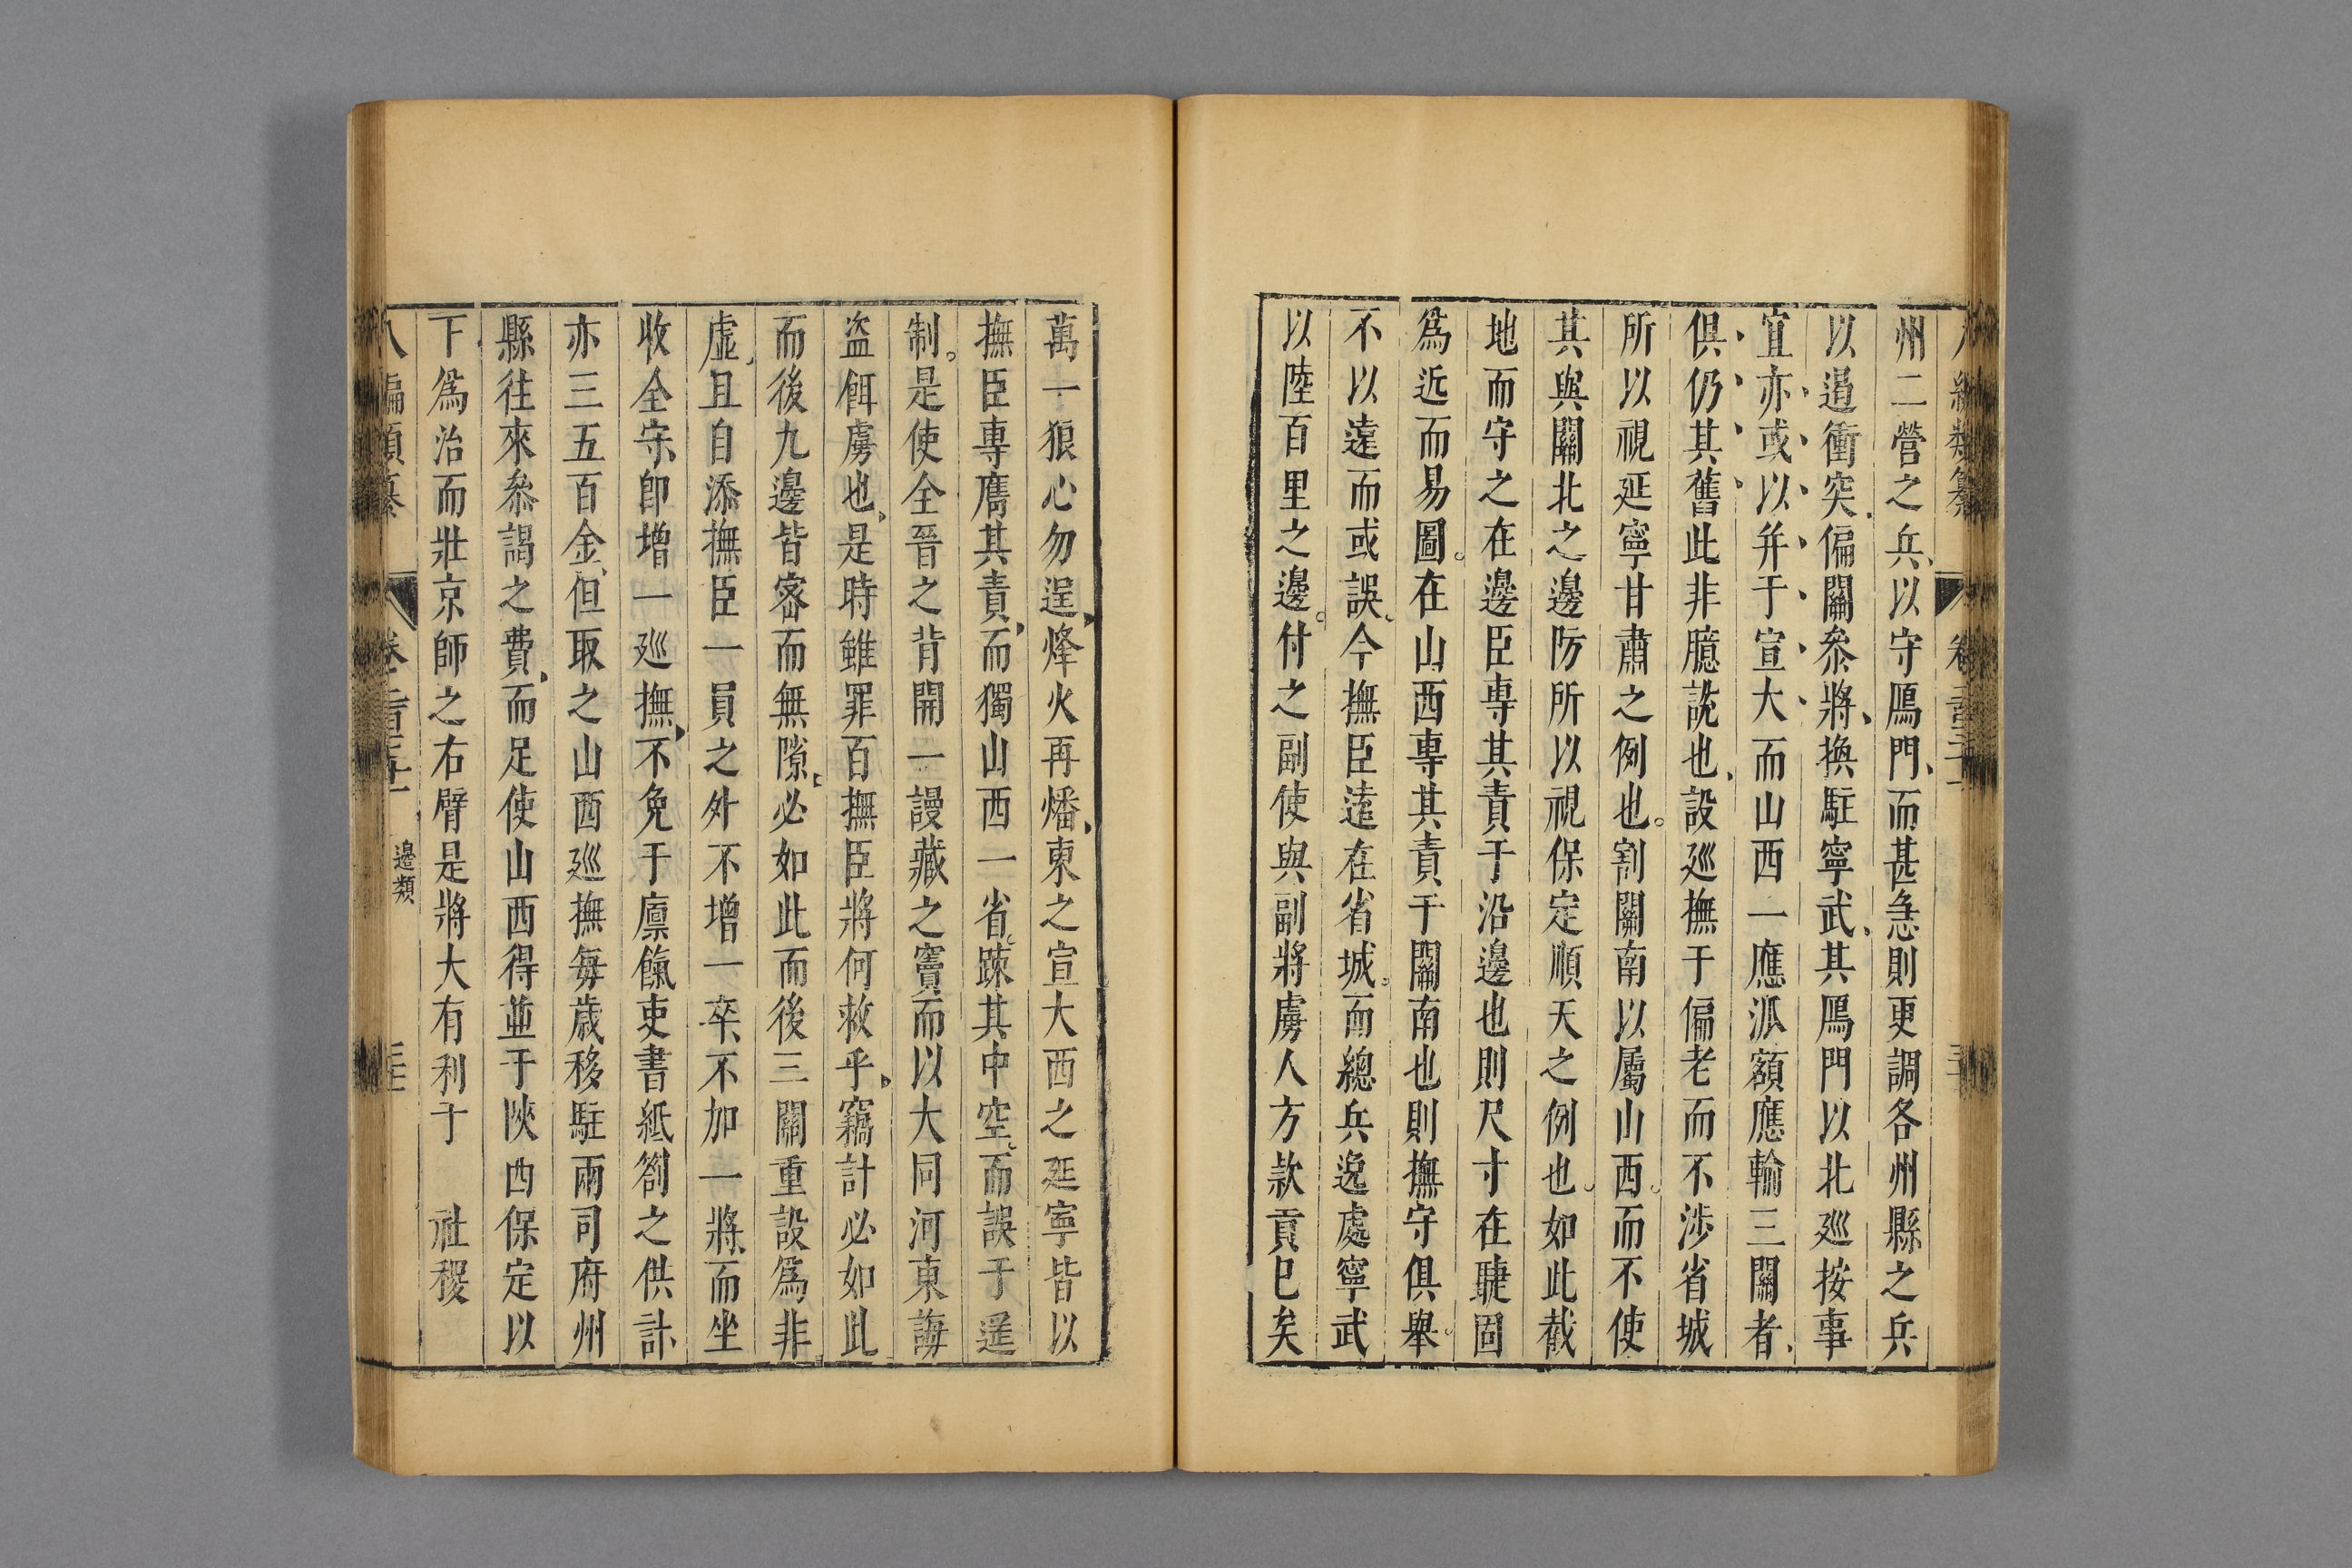 州二營之兵以守鴈門而甚急則更調各州縣之兵
以遏衝突偏關叅將換駐寧武其鴈門以北廵按事
宜亦或以并于宣大而山西一應派額應輸三關者
俱仍其舊此非臆說也設廵撫于偏老而不涉省城
所以視延寧甘肅之例也割關南以屬山西而不使
其與關北之邊防所以視保定順天之例也如此截
地而守之在邊臣專其責于沿邊也則尺寸在睫固
爲近而易圖在山西專其責于關南也則撫守俱舉
不以遠而或誤今撫臣遠在省城而總兵逸處寧武
以陸百里之邊付之副使與副將虜人方款貢已矣
萬一狼心勿逞烽火再燔東之宣大西之延寧皆以
撫臣專膺其責而獨山西一省踈其中空而誤于遥
制是使全晉之背開一謾藏之竇而以大同河東誨
盗餌虜也是時雖罪百撫臣將何救乎竊計必如此
而後九邊皆密而無隙必如此而後三關重設爲非
虛且自添撫臣一員之外不增一卒不加一將而坐
收全守卽增一廵撫不免于廪餼吏書紙劄之供計
亦三五百金但取之山西廵撫每歲移駐兩司府州
縣往來叅謁之費而足使山西得並于陜西保定以
下爲治而壯京師之右臂是將大有利于 社稷
八編類纂 卷 邊類